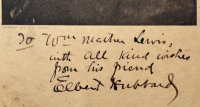 To Wm Mather Lewis,
with all kind wishes
from his friend
Elbert Hubbard